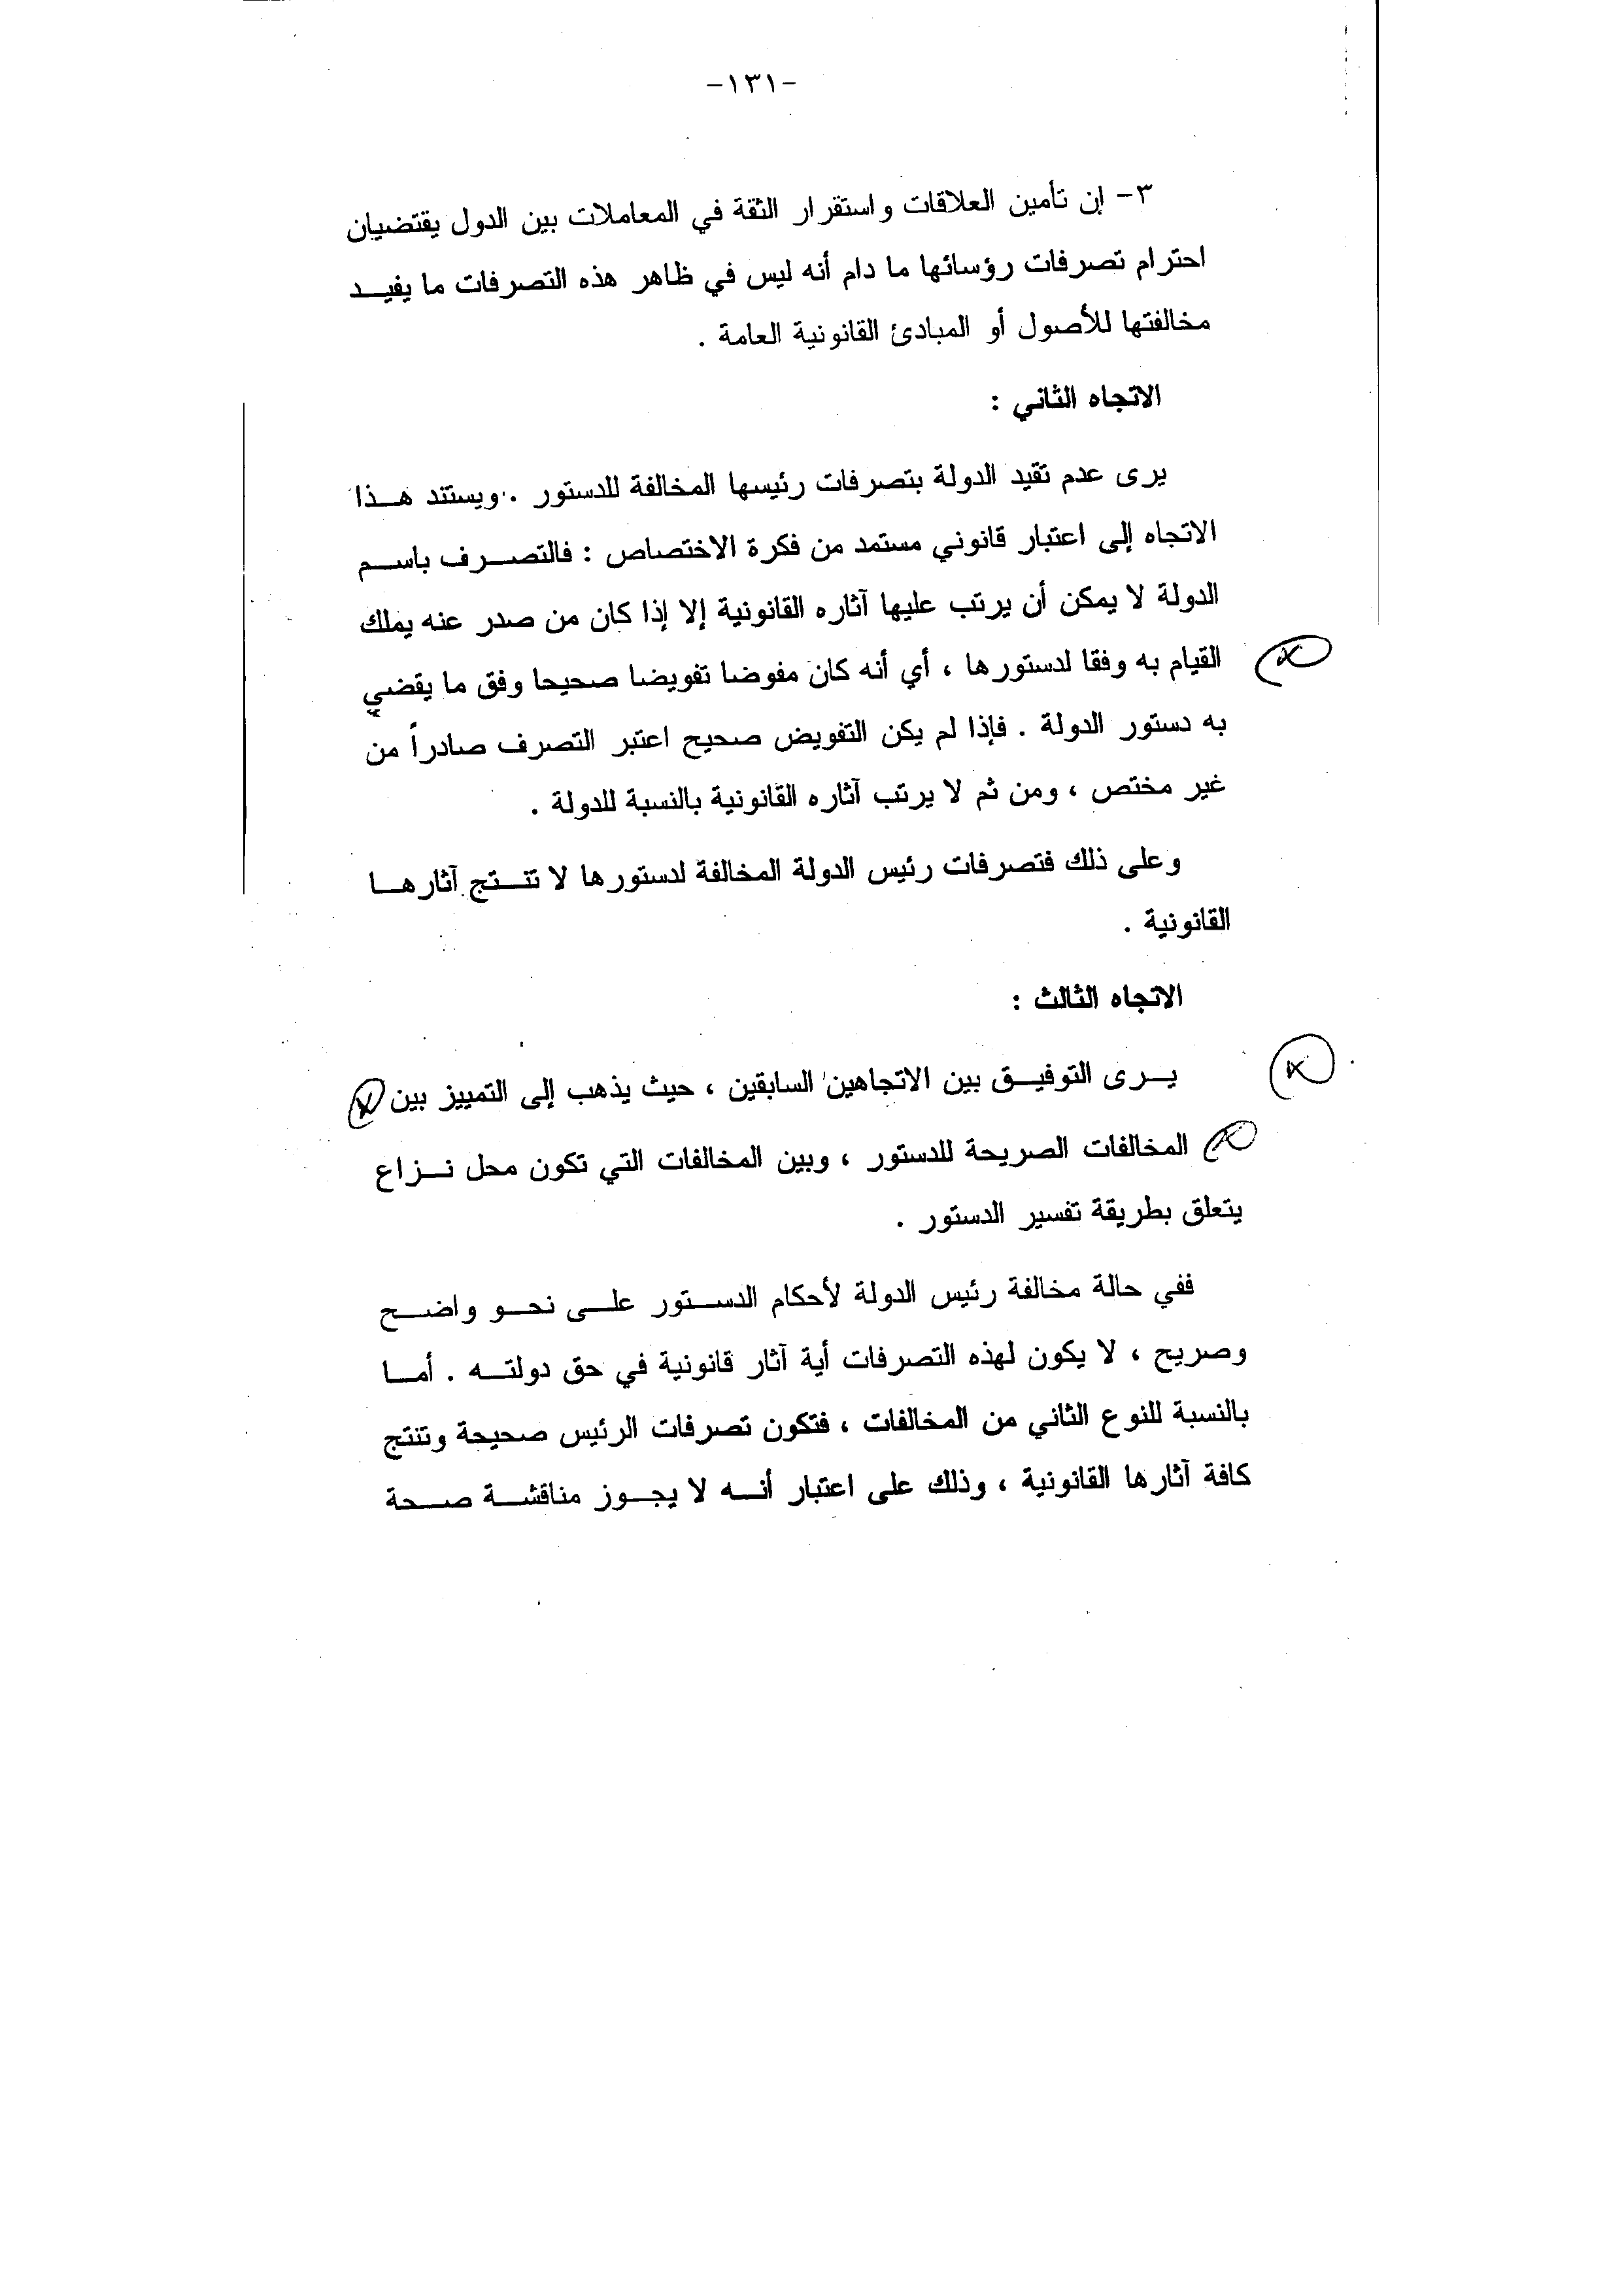 -١٣١-
٣- إن تأمين العلاقات واستقرار الثقة في المعاملات بين الدول يقتضيان
احترام تصرفات رؤسائها ما دام أنه ليس في ظاهر هذه التصرفات ما يفيــد
مخالفتها للأصول أو المبادئ القانونية العامة .
الاتجاه الثاني :
يرى عدم تقيد الدولة بتصرفات رئيسها المخالفة للدستور . ويستند هــذا
الاتجاه إلى اعتبار قانوني مستمد من فكرة الاختصاص : فالتصــرف باســم
الدولة لا يمكن أن يرتب عليها آثاره القانونية إلا إذا كان من صدر عنه يملك
القيام به وفقا لدستورها ، أي أنه كان مفوضا تفويضا صحيحا وفق ما يقضي
به دستور الدولة . فإذا لم يكن التفويض صحيح اعتبر التصرف صادراً من
غير مختص ، ومن ثم لا يرتب آثاره القانونية بالنسبة للدولة .
وعلى ذلك فتصرفات رئيس الدولة المخالفة لدستورها لا تنتــج آثارهــا
القانونية .
الاتجاه الثالث :
يــرى التوفيــق بين الاتجاهين السابقين ، حيث يذهب إلى التمييز بين
المخالفات الصريحة للدستور ، وبين المخالفات التي تكون محل نــزاع
يتعلق بطريقة تفسير الدستور .
ففي حالة مخالفة رئيس الدولة لأحكام الدســتور علــى نحــو واضــح
وصريح ، لا يكون لهذه التصرفات أية آثار قانونية في حق دولتــه . أمــا
بالنسبة للنوع الثاني من المخالفات ، فتكون تصرفات الرئيس صحيحة وتنتج
كافة آثارها القانونية ، وذلك على اعتبار أنــه لا يجــوز مناقشــة صــحة